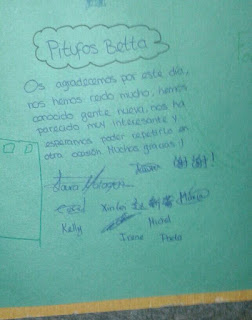 Pitufos Betta
Os agradecemos por este día,
nos hemos reído mucho, hemos
conocido gente nueva, nos ha
parecido muy interesante y
esperamos poder repetirlo en
otra ocasión. Muchas gracias!
Laura
Kelly
Irene Paola